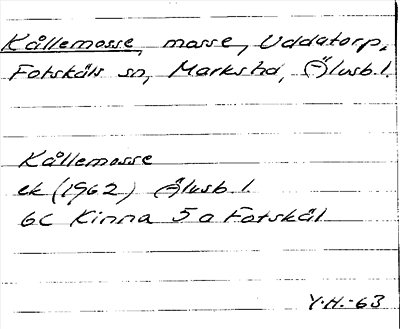 Kållemosse, mosse, Uddatorp,
Fotskäls sn, Marks hd, Älvsb. l.
Kållemosse
ek (1962) Älvsb l.
6C Kinna 5 a Fotskäl
Y.H.-63